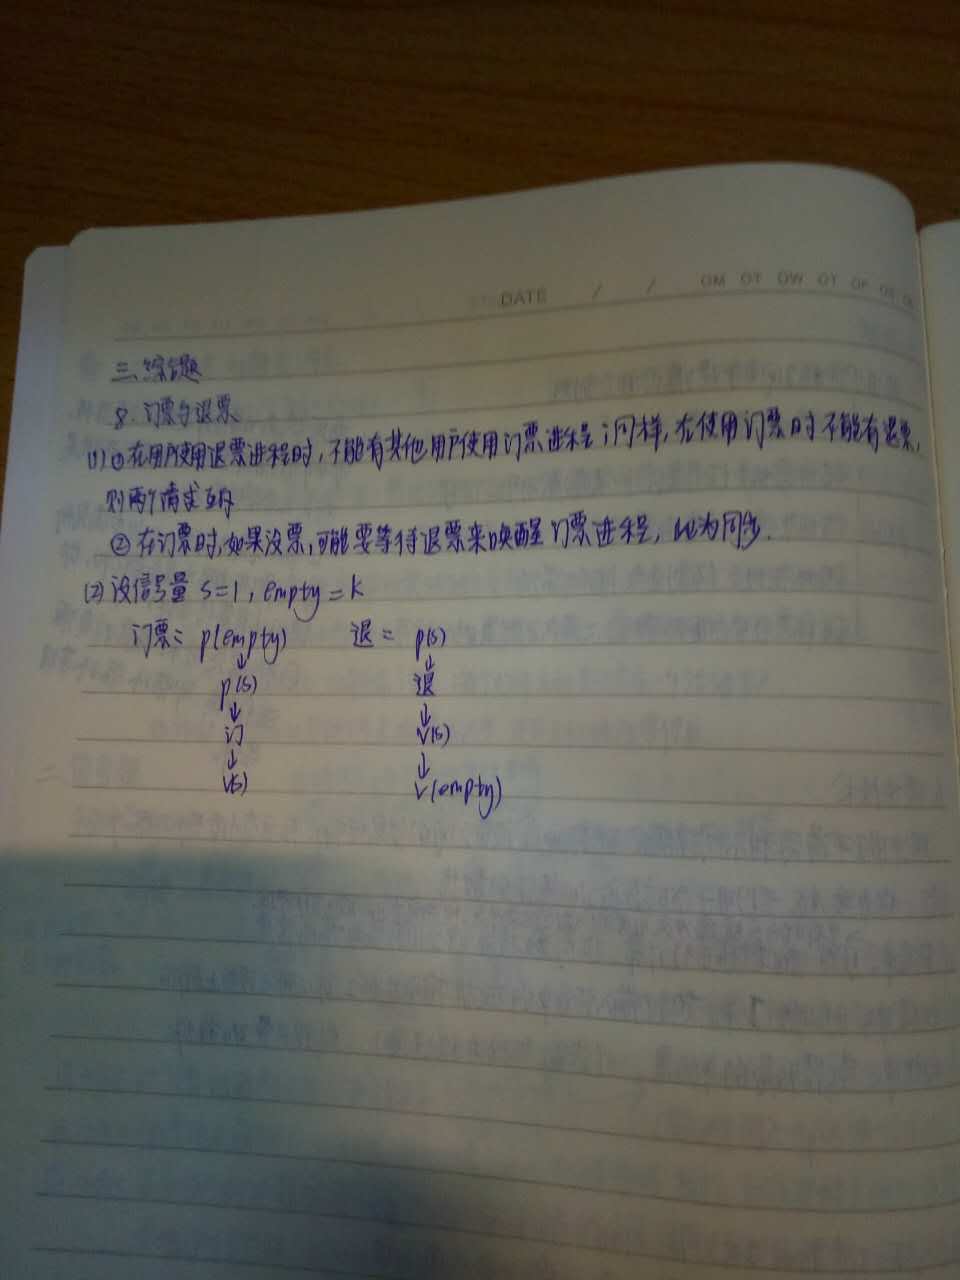 DATE / / OM OT OW OT OF OS OS
三、综合题
8. 订票与退票
(1) ① 在用户使用退票进程时，不能有其他用户使用订票进程；同样，在使用订票时不能有退票，
则两个请求互斥
② 在订票时，如果没票，可能要等待退票来唤醒订票进程，此为同步.
(2) 设信号量 S=1, empty=k
订票： p(empty) 退： p(s)
↓ ↓
p(s) 退
↓ ↓
订 V(s)
↓ ↓
V(s) V(empty)